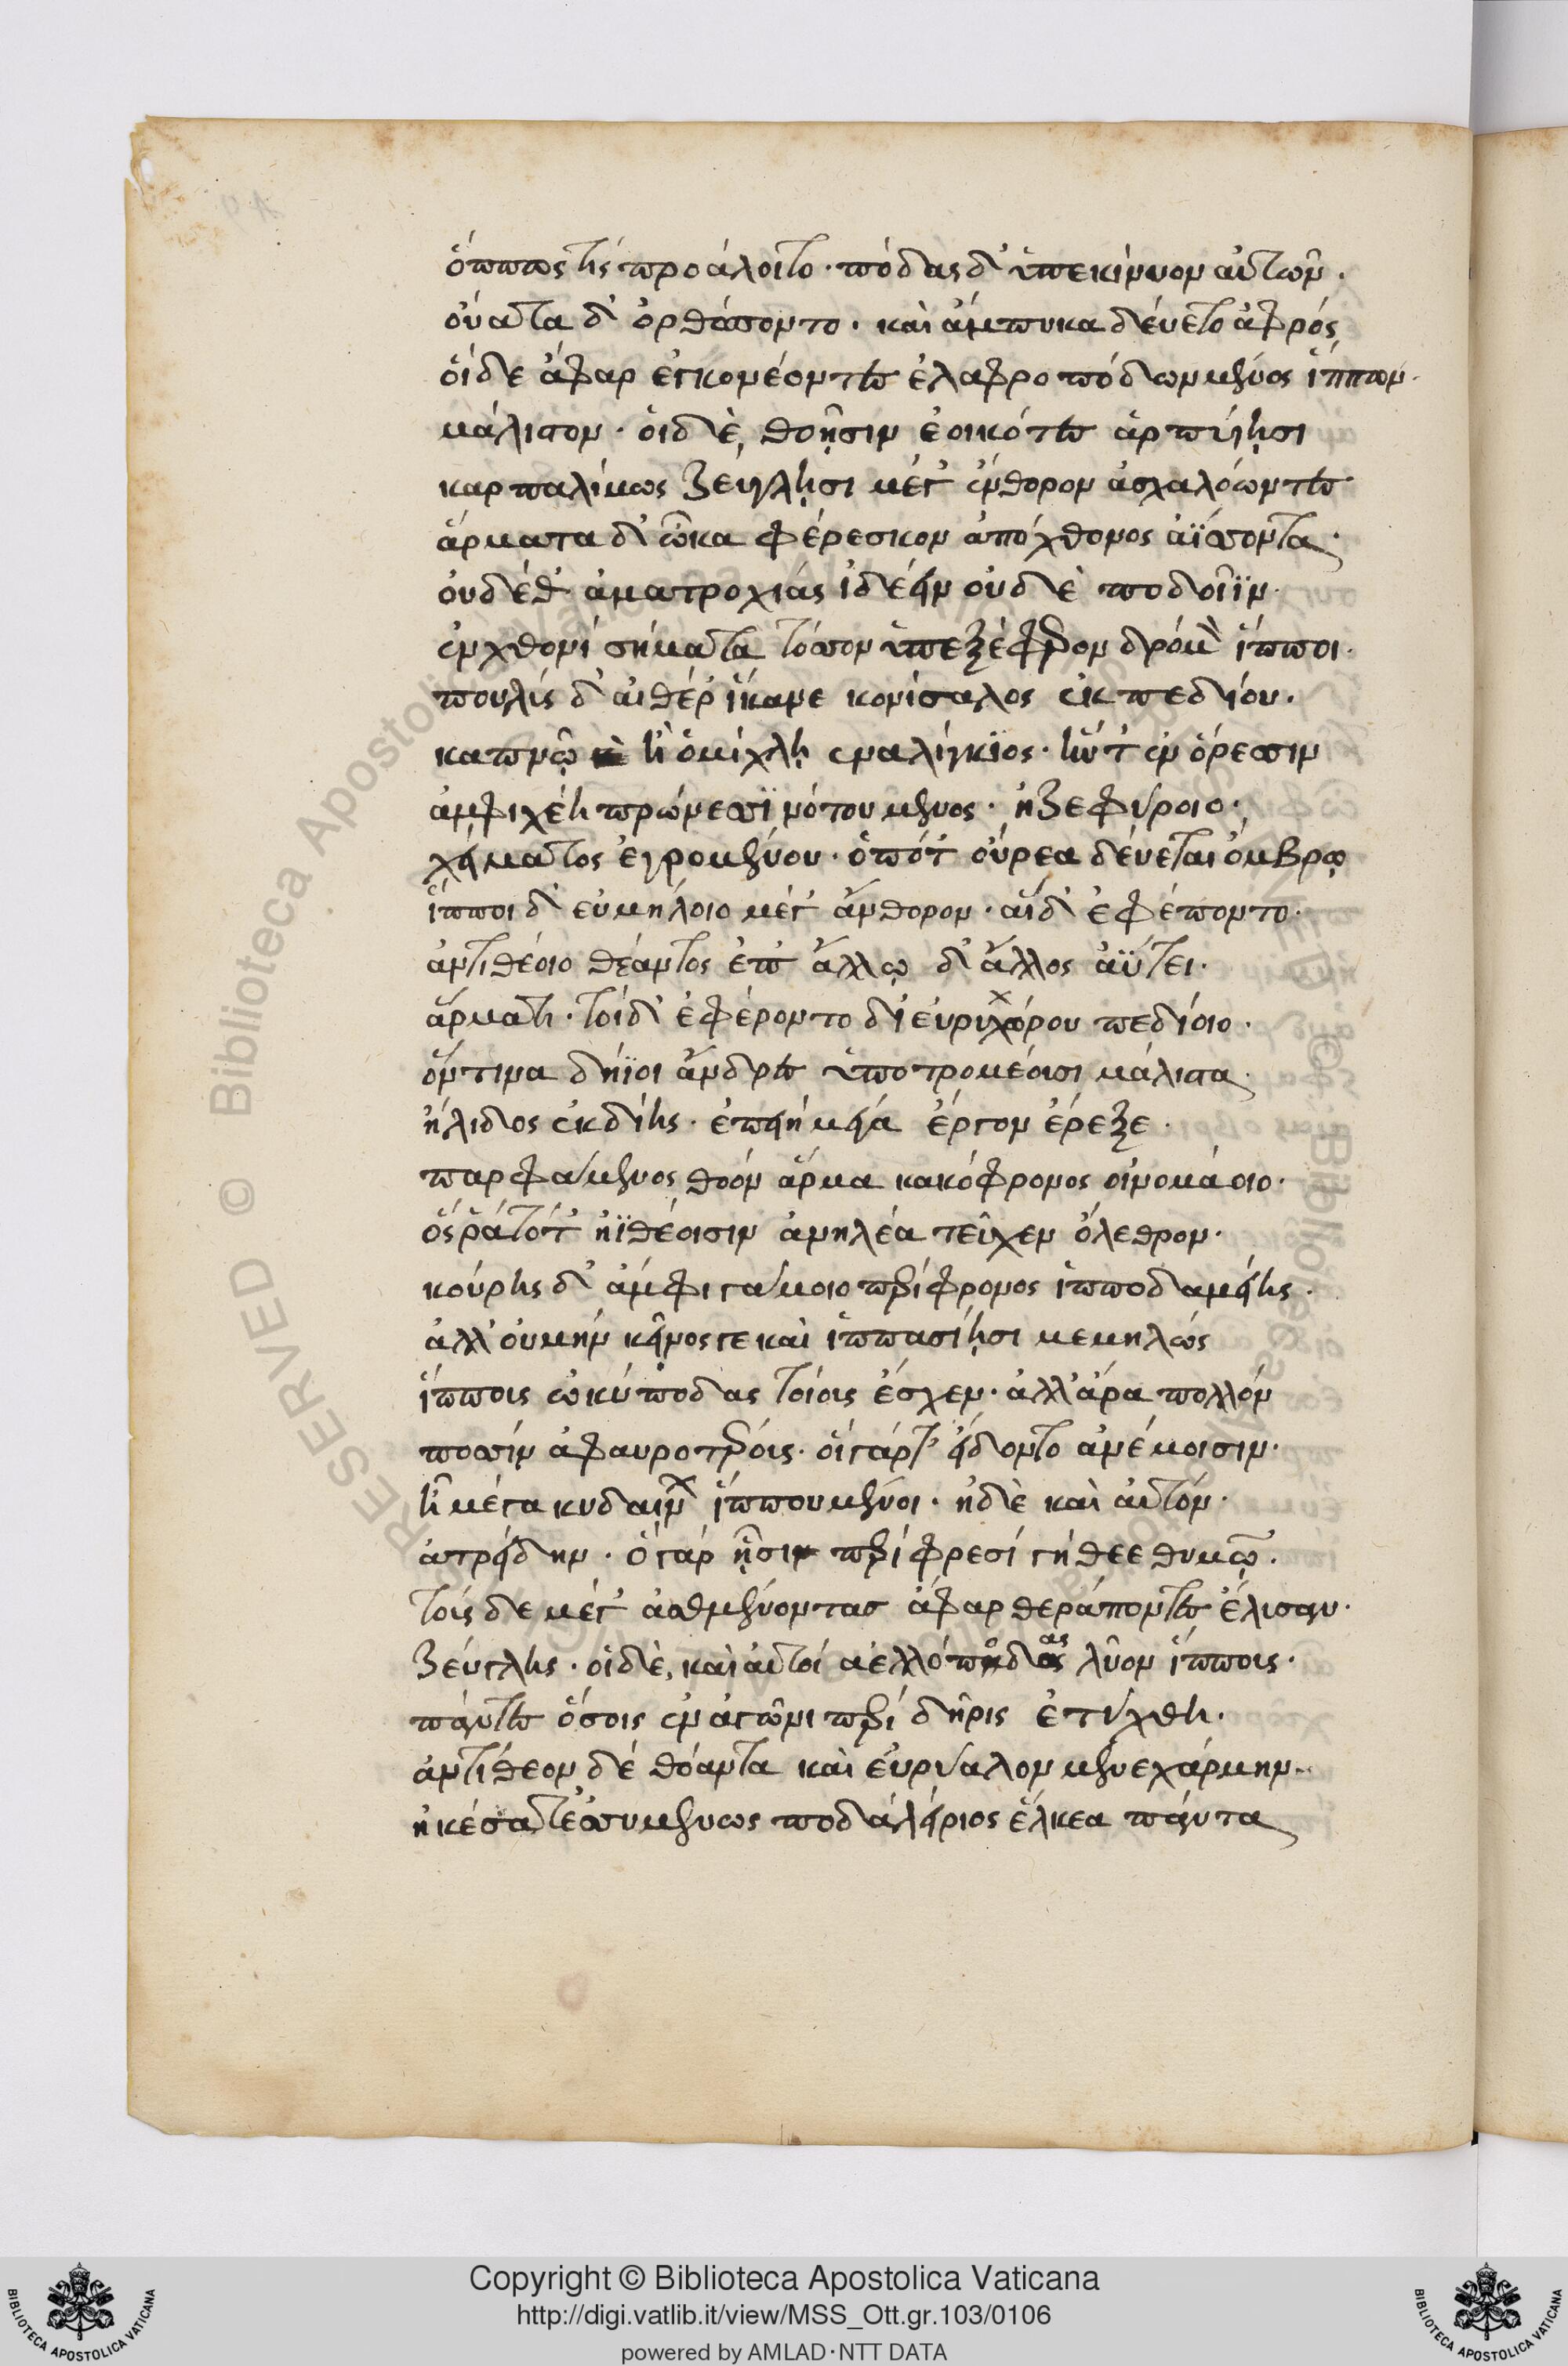 ὅππως τίς προάλοιτο· πόδας δ' ὑπεκίννον αὐτῶν.
οὔατα δ' ὀρθάσοντο. καὶ ἄμπυκα δεύετο ἀφρός
οἵδε ἄφαρ ἐγκονέοντες ἐλαφροπόδων μένος ἵππων.
μάλιστον· οἱ δὲ, θοῇσιν ἐοικότες ἁρπυίῃσι
καρπαλίμως ζεύγλῃσι μέγ' ἔνθορον ἀσχαλόωντες
ἅρματα δ' ὦκα φέρεσκον ἀπὸ χθονος ἀΐσσοντα·
οὐδέθ' ἁματροχιάς ἰδέειν οὐδὲ ποδοῖϊν·
ἐν χθονί σήματα τόσσον ὑπεξέφερον δρόμον ἵπποι.
πουλύς δ' αἰθέρ' ἵκανε κονίσαλος ἐκ πεδίου.
καπνῷ ἢ ὁμίχλῃ ἐναλίγκιος· ἣν τ' ἐν ὄρεσσιν
ἀμφιχέῃ πρώνεσσι νότου μένος· ἢ ζεφύροιο·
χείματος ἐγρομένου· ὁπότ' οὔρεα δεύεται ὄμβρῳ
ἵπποι δ' εὐμήλοιο μέγ' ἄνθορον· οἵδ' ἐφέποντο·
ἀντιθέοιο θόαντος ἐπ' ἄλλῳ δ' ἄλλος ἀΰτει·
ἅρματι· τοίδ' ἐφέροντο δι' εὐρυχόρου πεδίοιο.
ὅντινα δήϊοι ἄνδρες ὑποτρομέουσι μάλιστα·
ἤλιδος ἐκδίης· ἐπειή μέγα ἔργον ἔρεξε.
παρφάμενος θοόν ἅρμα κακόφρονος οἰνομάοιο·
ὅς ῥα τότ' ἠϊθέοισιν ἀνηλέα τεῦχεν ὄλεθρον·
κούρης δ' ἀμφι γάμοιο περίφρονος ἱπποδαμείης.
ἀλλ' οὐμήν κεῖνος γε καὶ ἱππασίῃσι μεμηλώς
ἵππους ὠκύποδας τοίους ἔσχεν· ἀλλ' ἄρα πολλόν
ποσσίν ἀφαυροτέρους· οἱ γάρ τ' εἴδοντο ἀνέμοισιν·
ἦ μέγα κυδαίνων ἵππου μένος· ἠδὲ καὶ αὐτόν·
ἀτρείδην· ὁ γάρ ᾗσι περί φρεσί γήθεε θυμῷ.
τούς δε μέγ' ἀσθμαίνοντας ἄφαρ θεράποντες ἔλυσαν·
ζεύγλης· οἱ δὲ, καὶ αὐτοί ἀελλόποδας λῦον ἵππους·
πάντες ὅσοις ἐν ἀγῶνι περί δῆρις ἐτύχθη.
ἀντίθεον δέ θόαντα καὶ εὐρύαλον μενεχάρμην..
ἠκέσατ' ἐσσυμένως ποδαλείριος ἕλκεα πάντα
Copyright © Biblioteca Apostolica Vaticana
http://digi.vatlib.it/view/MSS_Ott.gr.103/0106
powered by AMLAD·NTT DATA